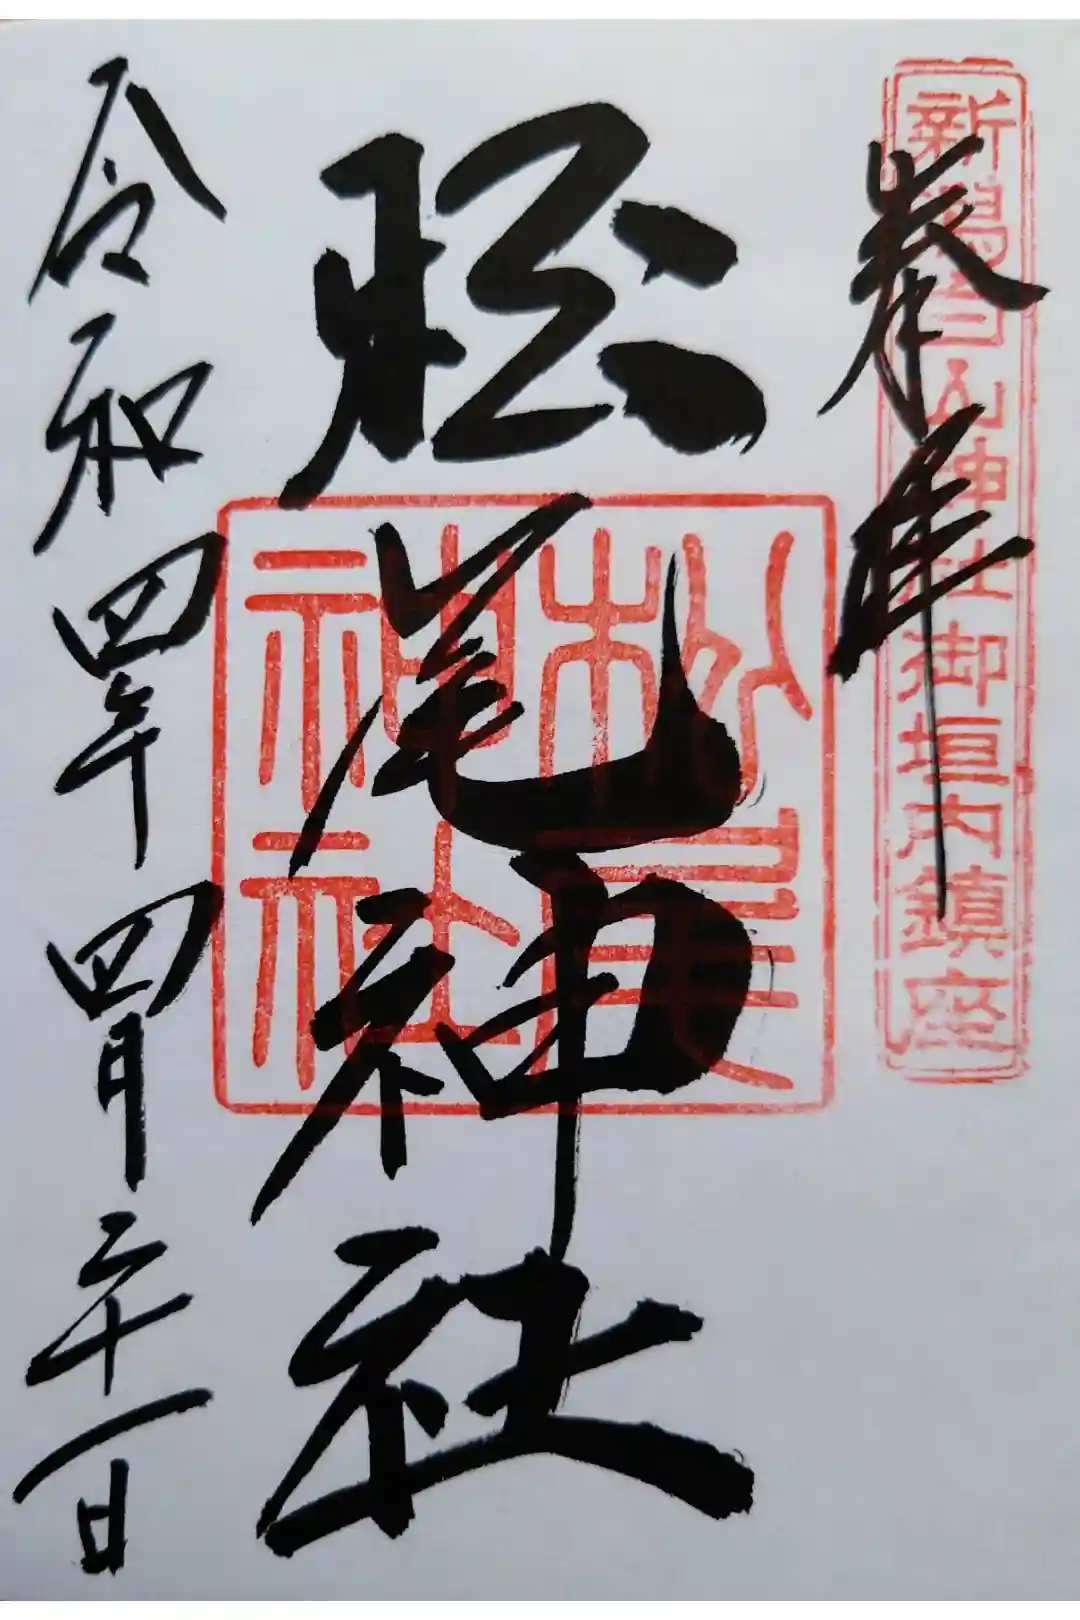 奉拝
新潟白山神社御垣内鎮座
松尾神社
松尾
神社
令和四年四月二十一日